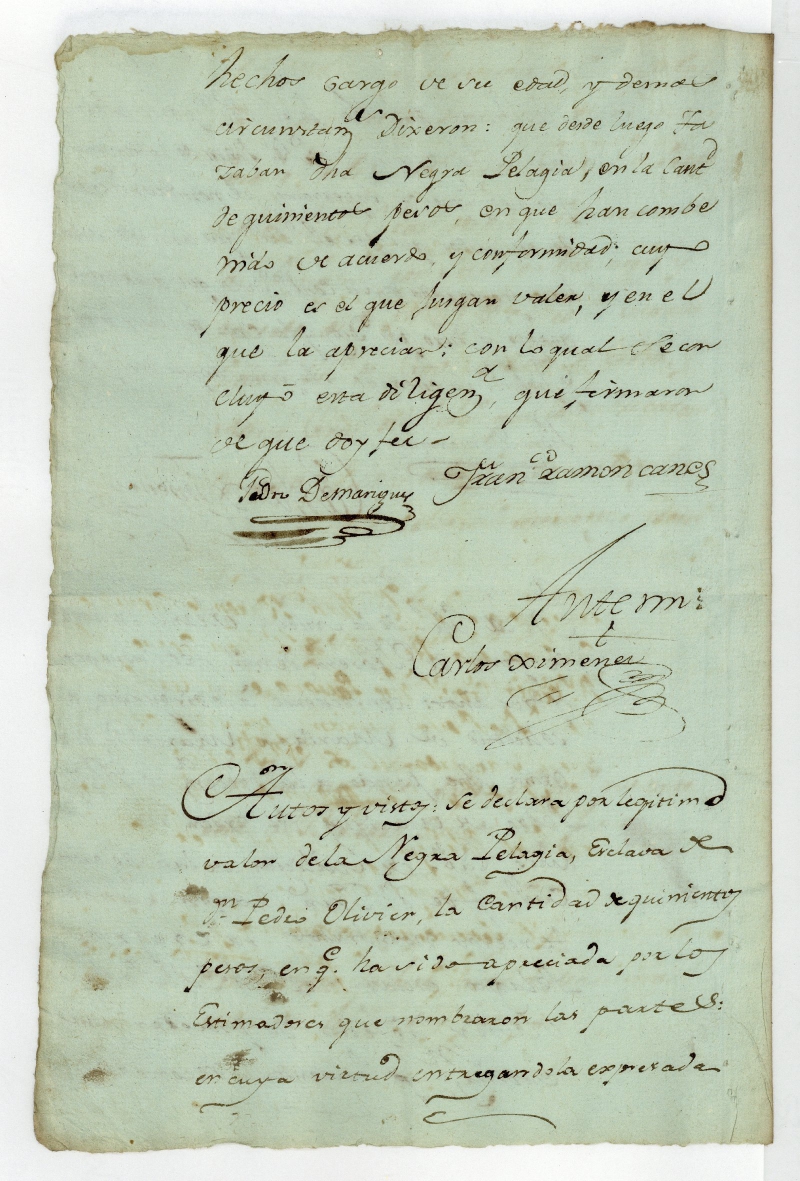 hechos Cargo de su edad, y demas
circunstan.s Dixeron: que desde luego Ta
zaban dha Negra Pelagia, en la Cant.d
de quinientos pesos, en que han combe
nido de acuerdo, y conformidad; cuyo
precio es el que jusgan valer, y en el
que la aprecian: con lo qual se con
cluyó esta diligen.a, que firmaron
de que doy fee =
Pedro Demarigny Fran.co Ramon canes
Antemi
Carlos Ximenez
Autos y vistos: se declara por legitimo
valor de la Negra Pelagia, Esclava de
D.n Pedro Olivier, la Cantidad de quinientos
pesos, en q.e ha sido apreciada por los
Estimadores que nombraron las partes:
en cuya virtud entregandola expresada